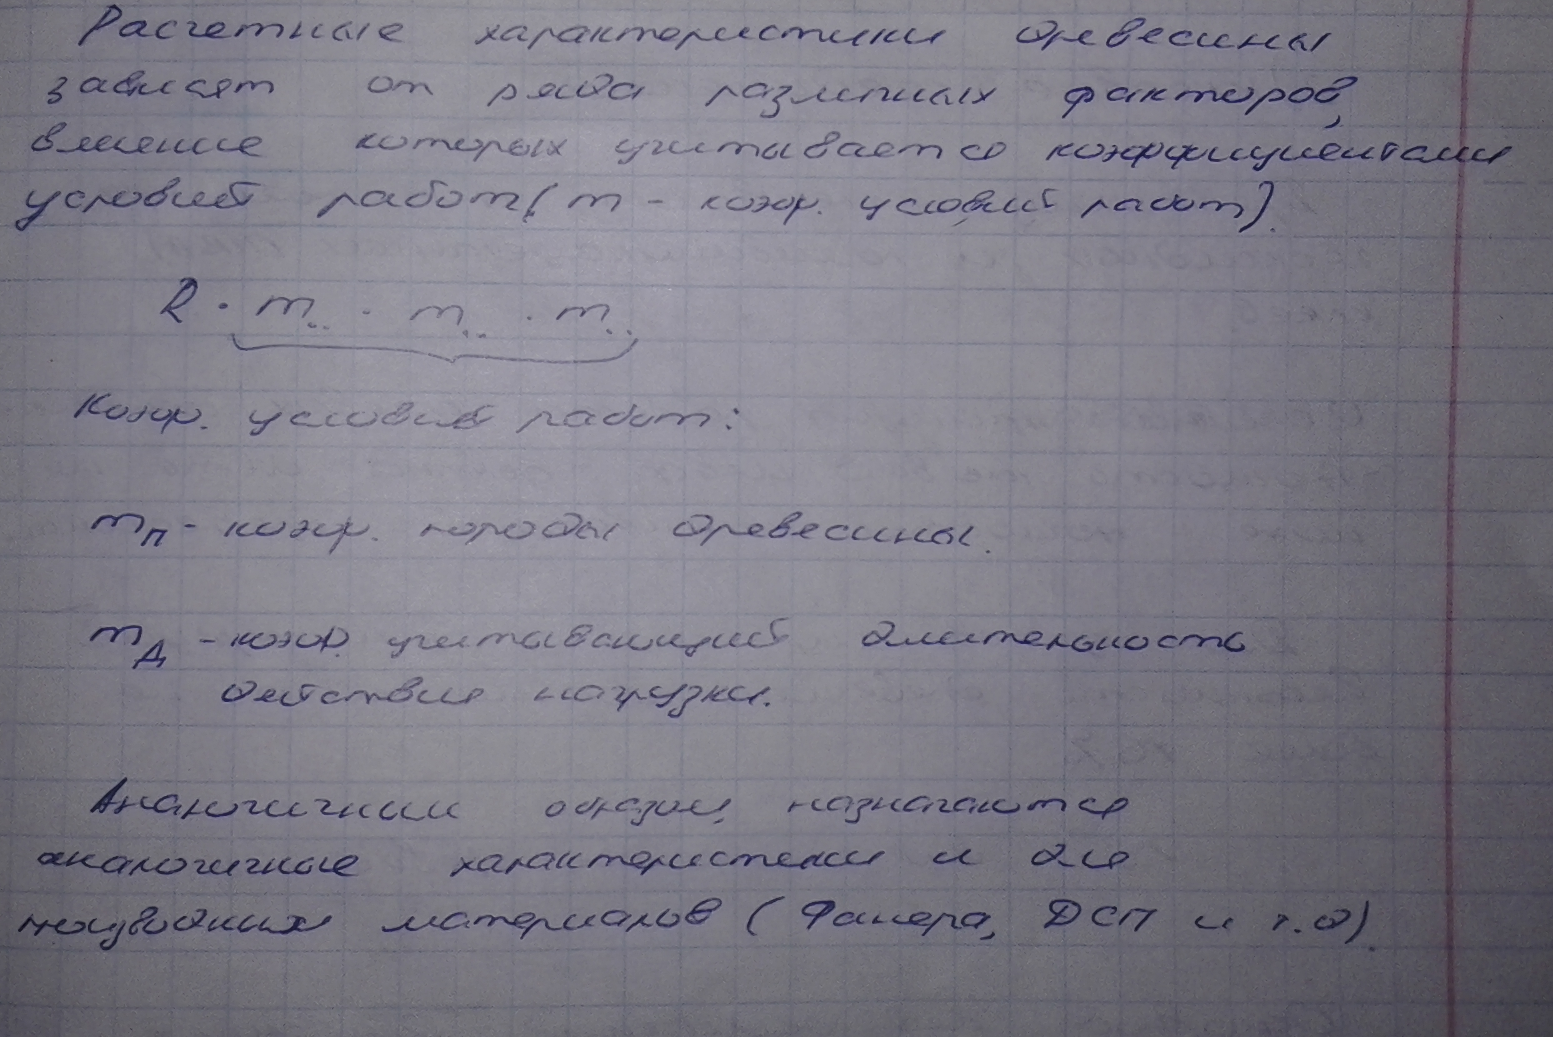 Расчетные характеристики древесины
зависят от ряда различных факторов,
влияние которых учитывается коэффициентами
условий работ (m - коэф. условий работ).
R · m.. · m.. · m..
Коэф. условий работ:
mп - коэф. породы древесины.
mД - коэф. учитывающий длительность
действия нагрузки.
Аналогичным образом, назначаются
аналогичные характеристики и для
материалов (Фанера, ДСП и т.д).